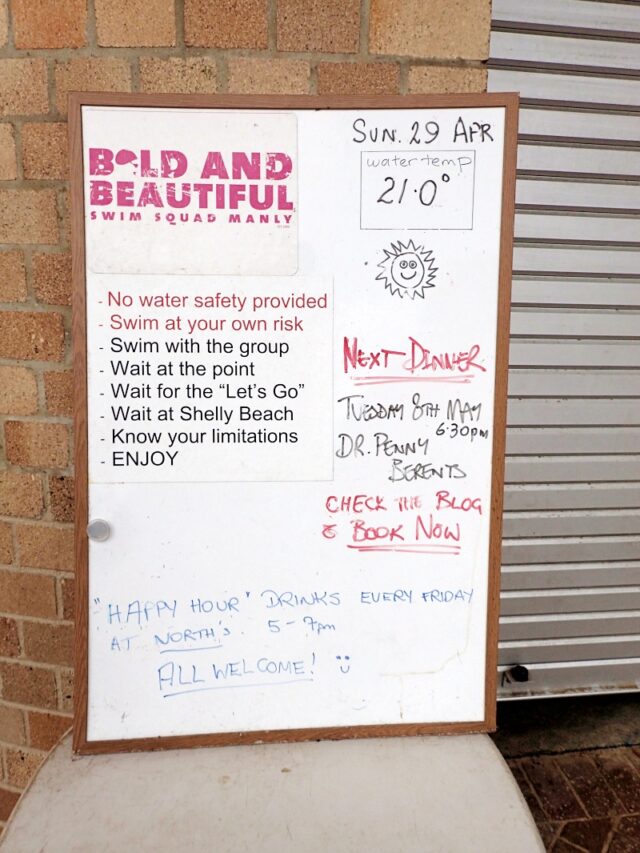 BOLD AND
BEAUTIFUL
SWIM SQUAD MANLY
SUN. 29 APR
water temp
21.0°
- No water safety provided
- Swim at your own risk
- Swim with the group
- Wait at the point
- Wait for the “Let’s Go”
- Wait at Shelly Beach
- Know your limitations
- ENJOY
NEXT DINNER
TUESDAY 8TH MAY
6.30pm
DR. PENNY
BERENTS
CHECK THE BLOG
& BOOK NOW
"HAPPY HOUR" DRINKS EVERY FRIDAY
AT NORTH'S. 5-7pm
ALL WELCOME!